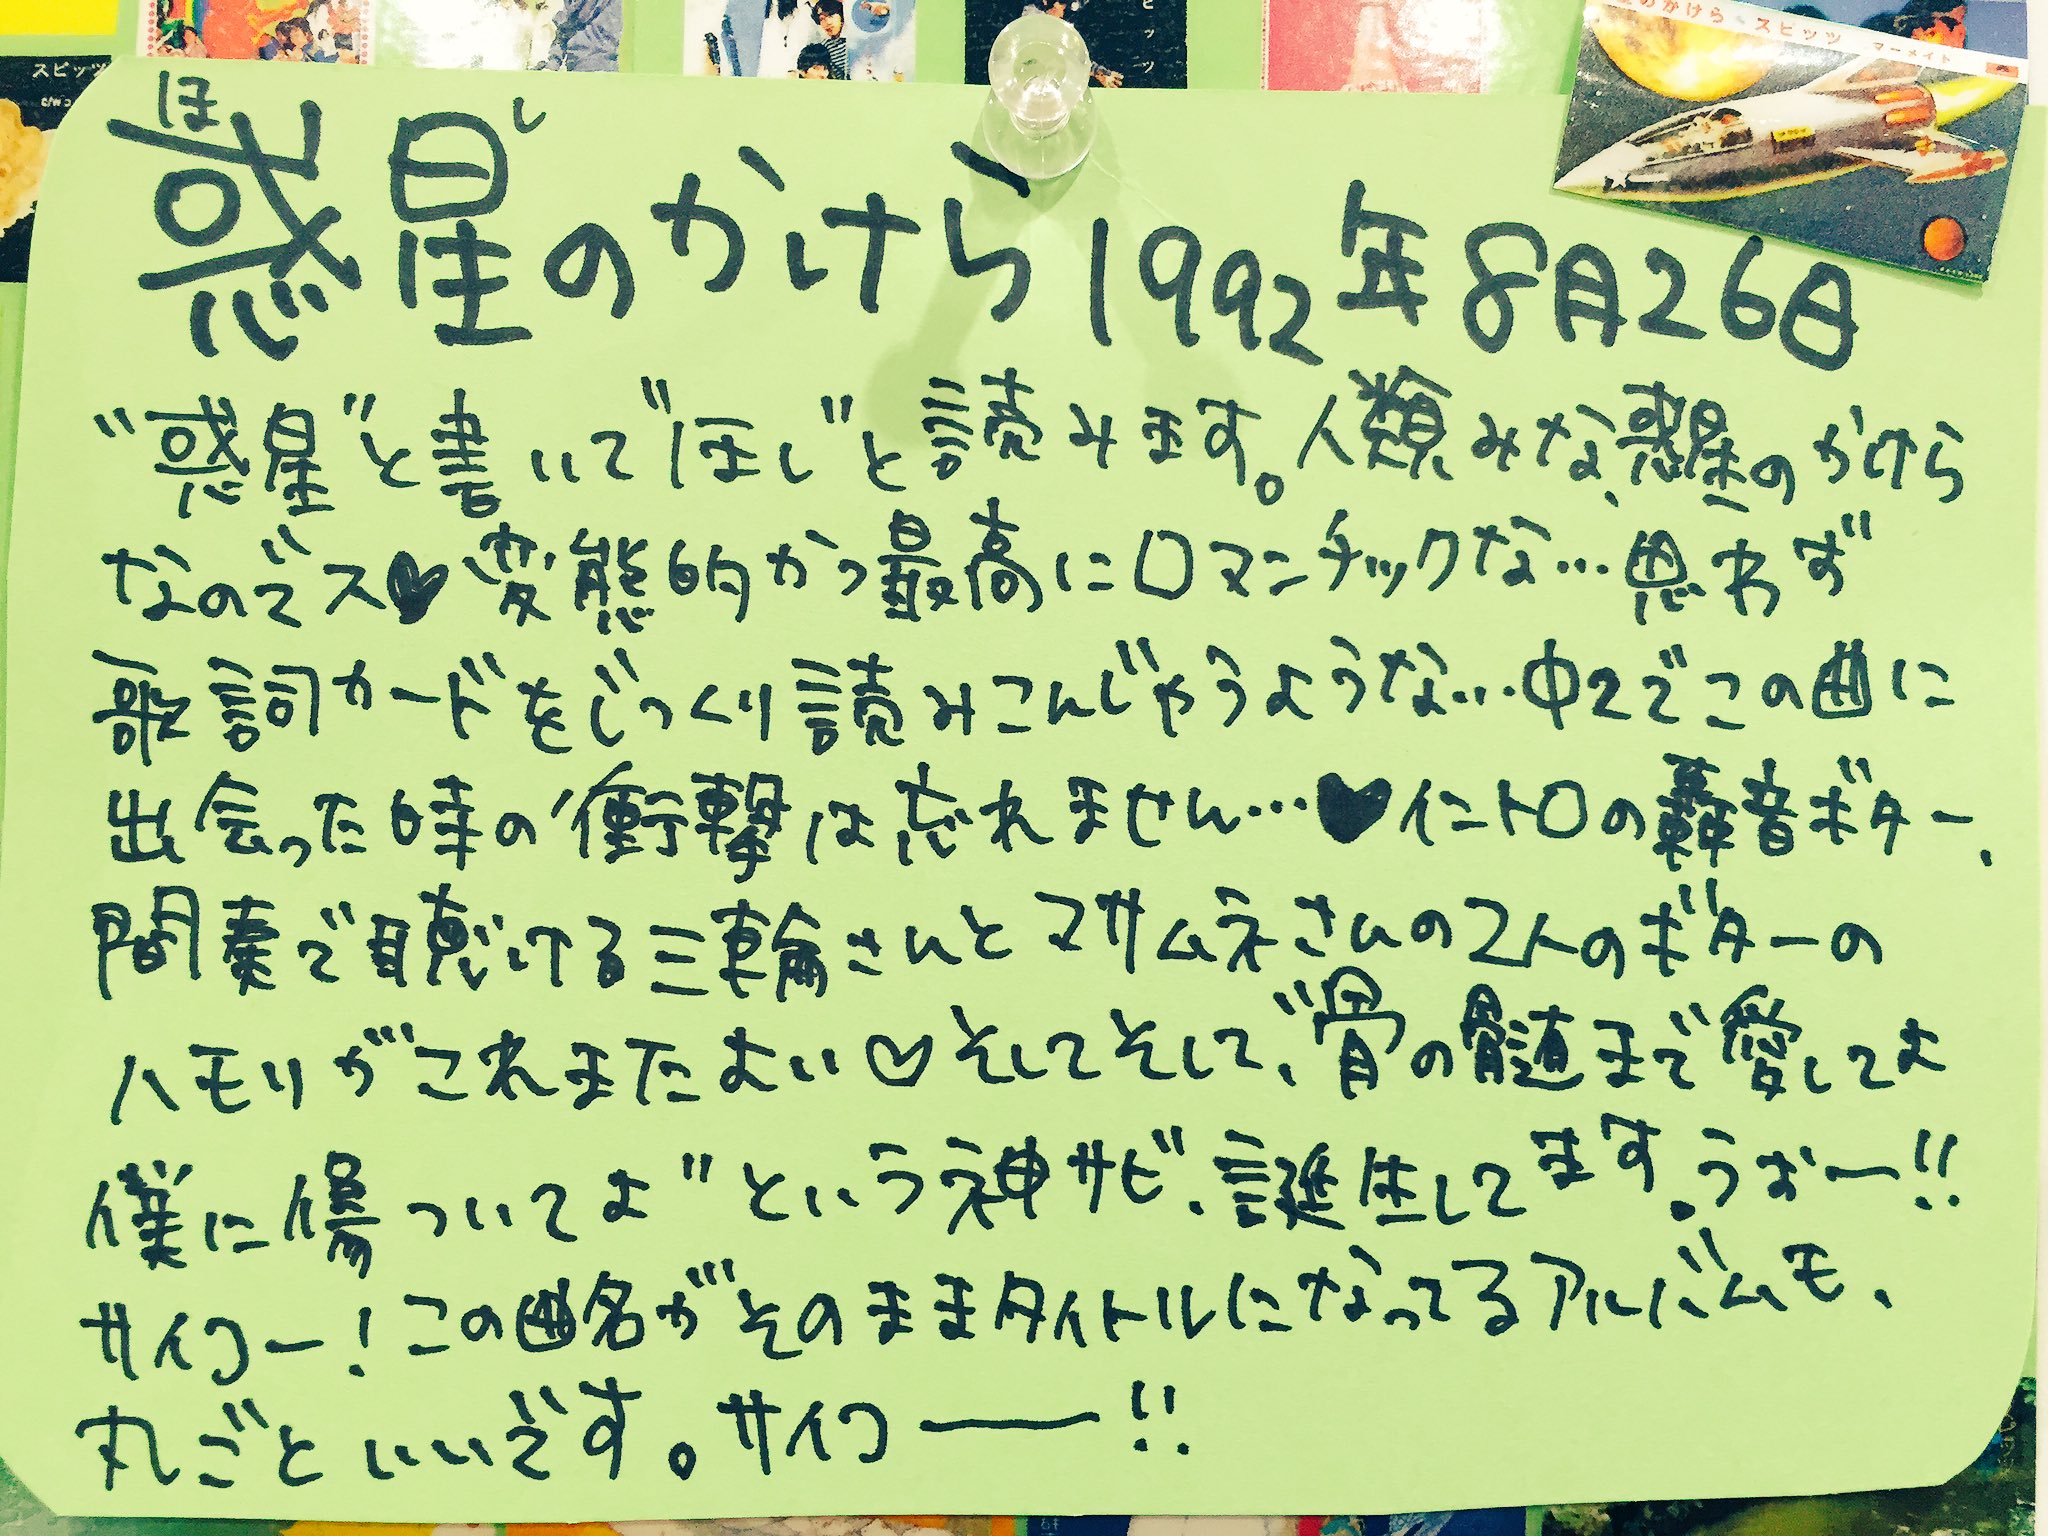 スピッツ
c/w
ッツ
のかけら・スピッツ マーメイド
ほし
惑星のかけら 1992年8月26日
"惑星"と書いて"ほし"と読みます。人類みな、惑星のかけら
なのでス♥変態的かつ最高にロマンチックな…思わず
歌詞カードをじっくり読みこんじゃうような…中2でこの曲に
出会った時の衝撃は忘れません…♥イントロの轟音ギター、
間奏で聴ける三輪さんとマサムネさんの2人のギターの
ハモリがこれまたよい♡そしてそして、"骨の髄まで愛してよ
僕に傷ついてよ"という神サビ、誕生してます。うおー!!
サイコー!この曲名がそのままタイトルになってるアルバムも、
丸ごといいです。サイコー!!